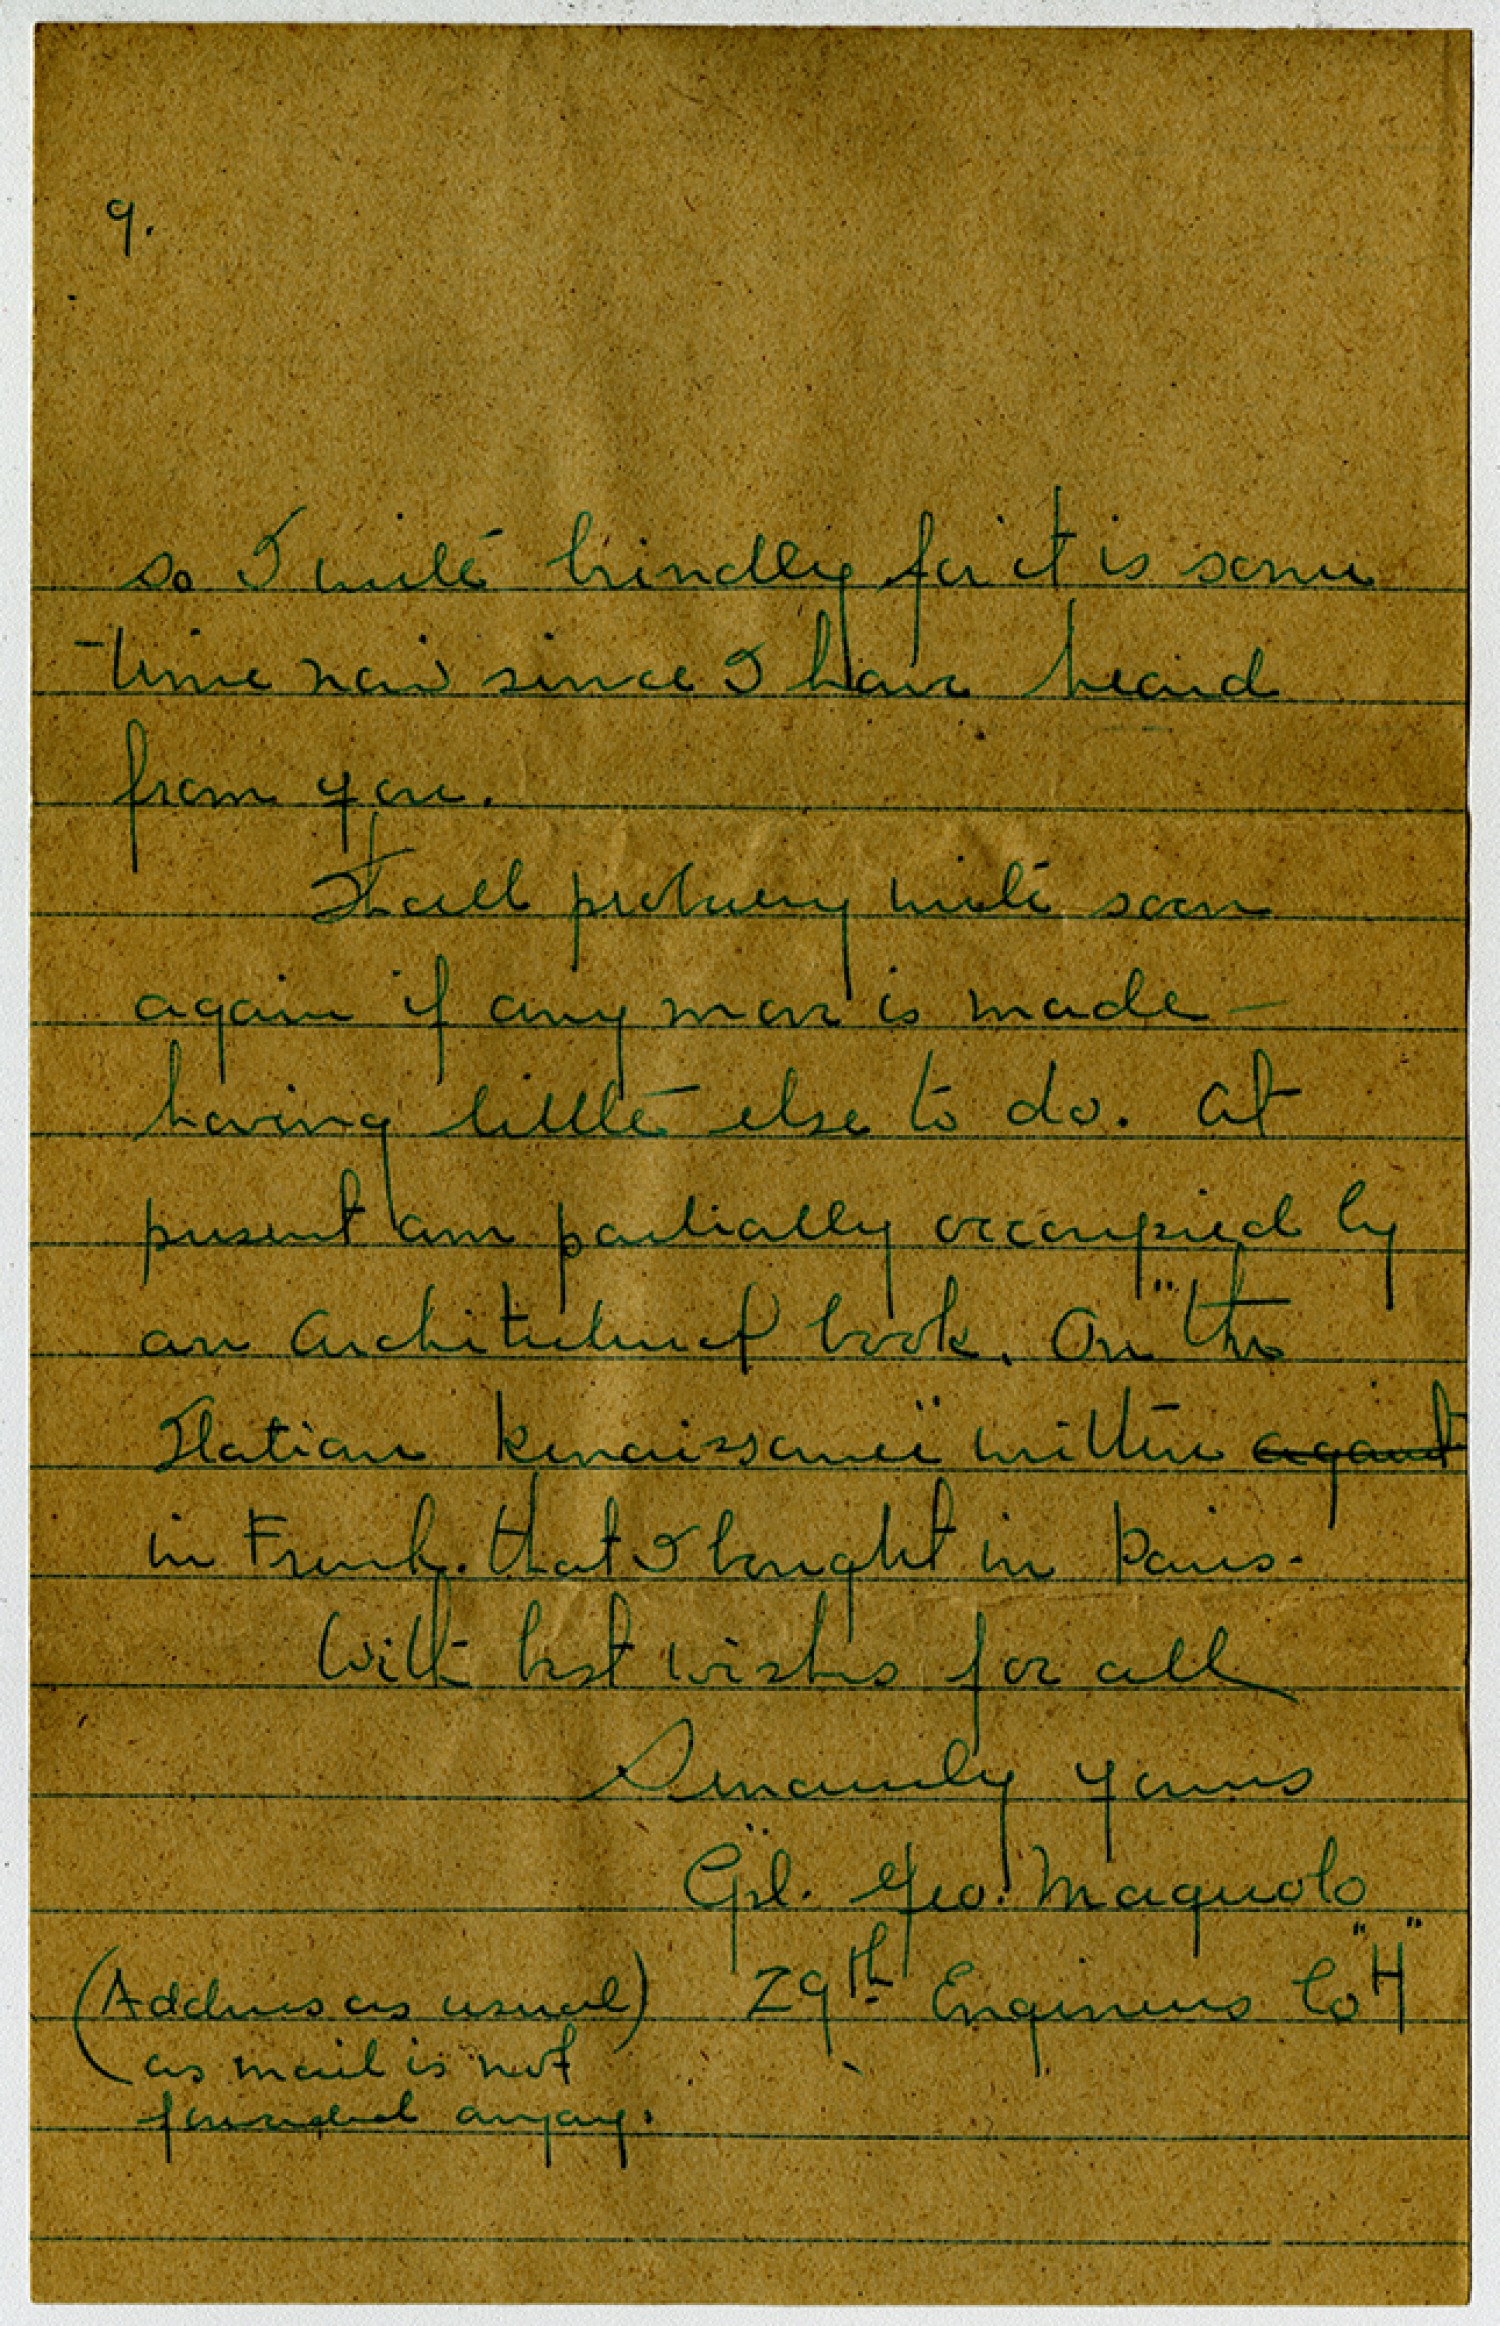 9.
so I write kindly for it is some
time now since I have heard
from you.
Shall probably write soon
again if any move is made –
having little else to do. At
present am partially occupied by
an Architectural book. On "the
Italian Renaissance" written
in French. that I bought in Paris.
With best wishes for all
Sincerely yours
Cpl. Geo. Maguolo
(Address as usual) 29th Engineers Co "H"
as mail is not
forwarded anyway.